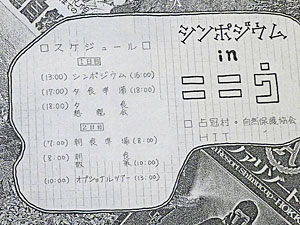 シンポジウム
in
ニニウ
□占冠村・自然保護協会
HIT
□スケジュール□
1日目
(13:00) シンポジウム (16:00)
(17:00) 夕食準備 (18:00)
(18:00) 夕食
懇親会
2日目
(7:00) 朝食準備 (8:00)
(8:00) 朝食
散策 (10:00)
(10:00) オプショナルツアー (13:00)